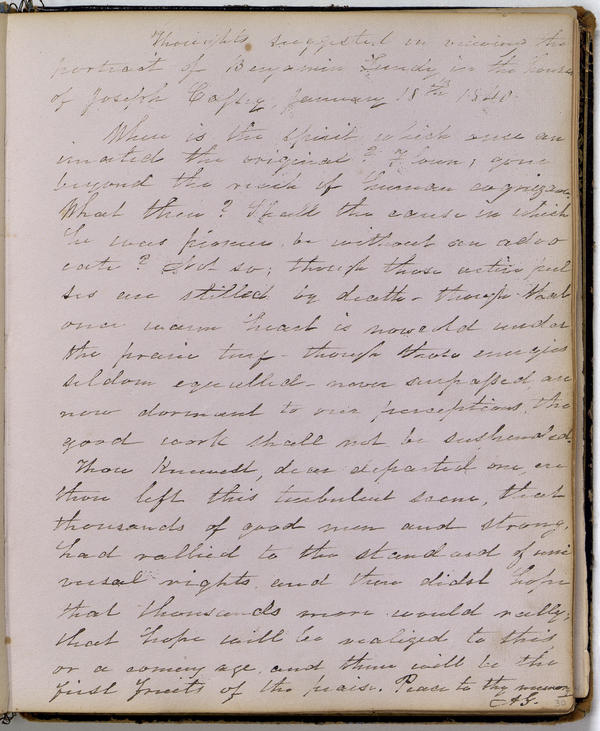 Thoughts suggested on viewing the
portrait of Benjamin Lundy, in the house
of Joseph Cassey, January 18th 1840.
Where is the spirit which once an
imated the original? Flown; gone
beyond the reach of human cognizance.
What then? Shall the cause in which
he was pioneer, be without an advo
cate? Not so; though those active pul
ses are stilled by death – though that
once warm heart is now cold under
the prairie turf – though those energies
seldom equelled – never surpassed, are
now dormant to our perceptions, the
good work shall not be suspended.
Thou knewest, dear departed one, ere
thou left this turbulent scene, that
thousands of good men and strong,
had rallied to the standard of uni
versal rights and thou didst hope
that thousands more would rally;
that hope will be realized to this
or a coming age, and thine will be the
first fruits of the praise. Peace to thy memory
30